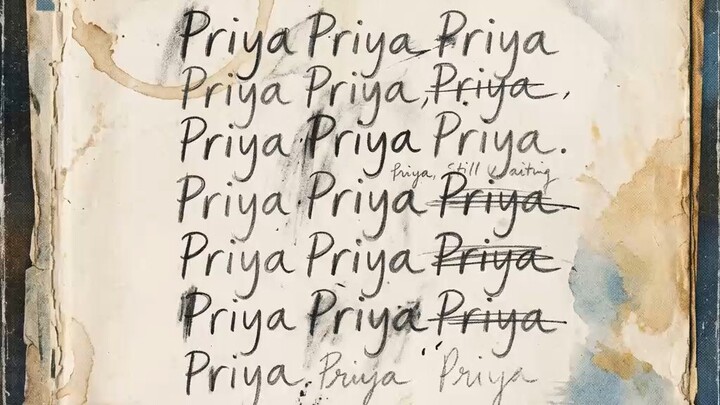 Priya Priya Priya
Priya Priya, Priya,
Priya Priya Priya.
Priya, still waiting
Priya Priya Priya
Priya Priya Priya
Priya Priya Priya
Priya. Priya Priya